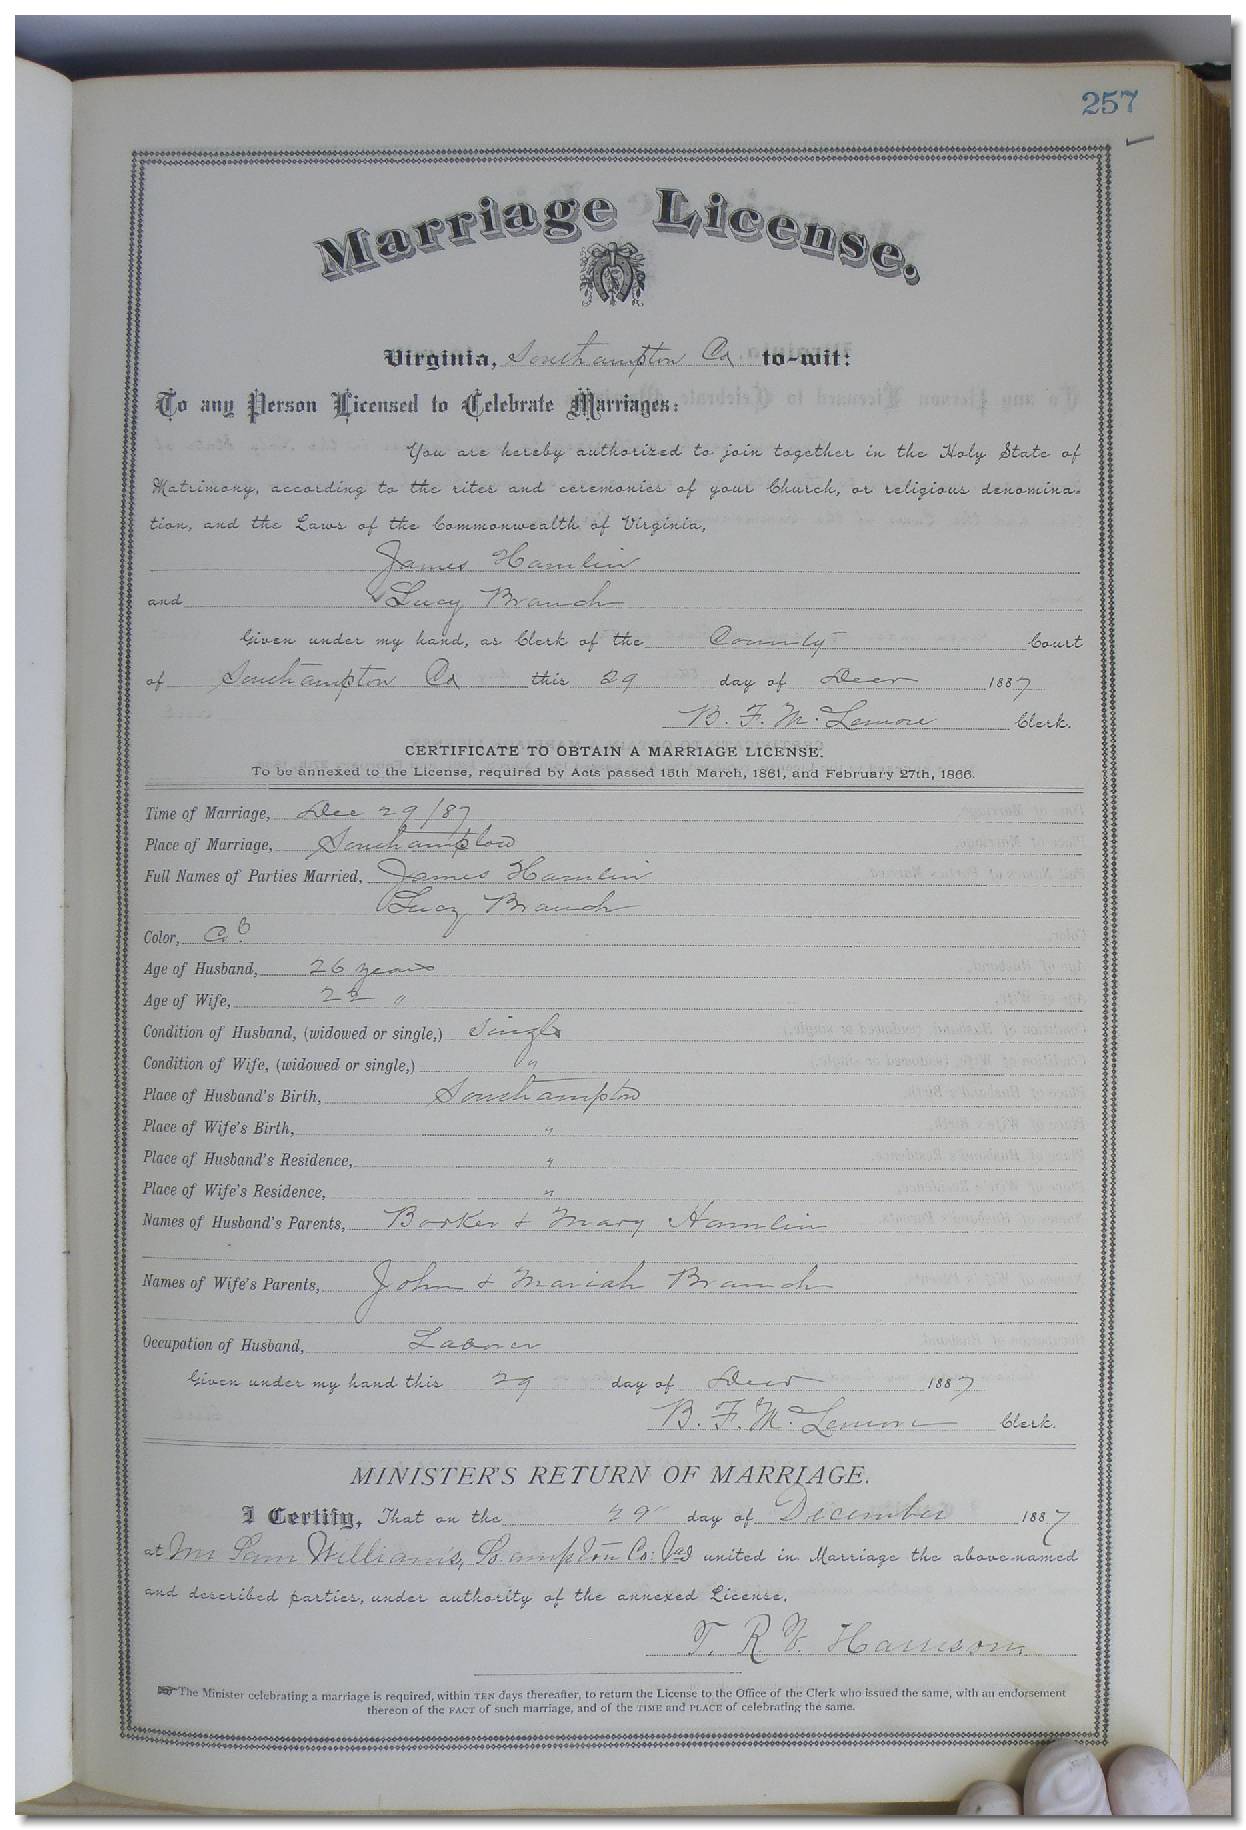 257
Marriage License.
Virginia, Southampton Co to-wit:
To any Person Licensed to Celebrate Marriages:
You are hereby authorized to join together in the Holy State of
Matrimony, according to the rites and ceremonies of your Church, or religious denomina-
tion, and the Laws of the Commonwealth of Virginia,
James Hamlin
and Lucy Branch
Given under my hand, as Clerk of the County Court
of Southampton Co this 29 day of Decr 1887
B. F. Mc Lemore Clerk.
CERTIFICATE TO OBTAIN A MARRIAGE LICENSE.
To be annexed to the License, required by Acts passed 15th March, 1861, and February 27th, 1866.
Time of Marriage, Dec 29/87
Place of Marriage, Southampton
Full Names of Parties Married, James Hamlin
Lucy Branch
Color,
Age of Husband, 26 years
Age of Wife, "
Condition of Husband, (widowed or single,) Single
Condition of Wife, (widowed or single,) "
Place of Husband's Birth, Southampton
Place of Wife's Birth, "
Place of Husband's Residence, "
Place of Wife's Residence, "
Names of Husband's Parents, Booker & Mary Hamlin
Names of Wife's Parents, John & Mariah Branch
Occupation of Husband, Laborer
Given under my hand this 29 day of Decr 1887
B. F. Mc Lemore Clerk.
MINISTER'S RETURN OF MARRIAGE.
I Certify, That on the 29" day of December 1887
at Mr Sam William's, S. ampton Co: Va I united in Marriage the above-named
and described parties, under authority of the annexed License.
T. R. V. Harrison
The Minister celebrating a marriage is required, within TEN days thereafter, to return the License to the Office of the Clerk who issued the same, with an endorsement
thereon of the FACT of such marriage, and of the TIME and PLACE of celebrating the same.